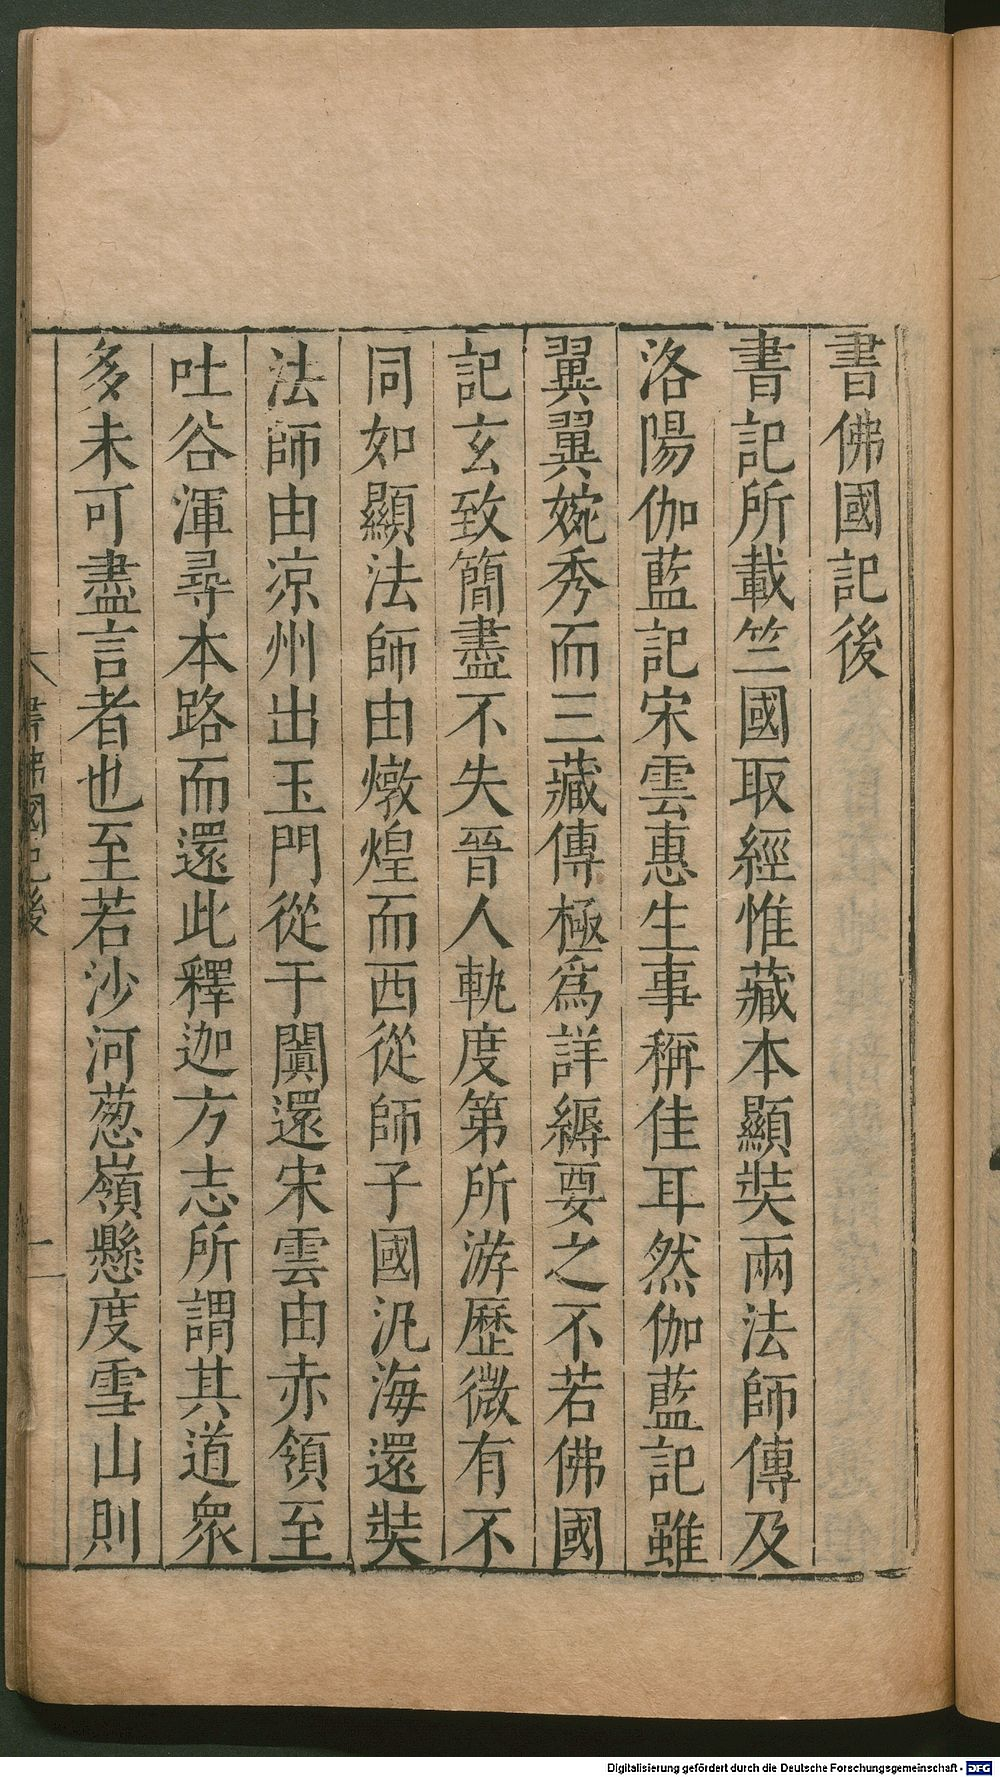 書佛國記後
書記所載竺國取經惟藏本顯奘兩法師傳及
洛陽伽藍記宋雲惠生事稱佳耳然伽藍記雖
翼翼婉秀而三藏傳極爲詳縟要之不若佛國
記玄致簡盡不失晉人軌度第所游歷微有不
同如顯法師由燉煌而西從師子國汎海還奘
法師由凉州出玉門從于闐還宋雲由赤領至
吐谷渾尋本路而還此釋迦方志所謂其道衆
多未可盡言者也至若沙河葱嶺懸度雪山則
書佛國記後
一
Digitalisierung gefördert durch die Deutsche Forschungsgemeinschaft - DFG